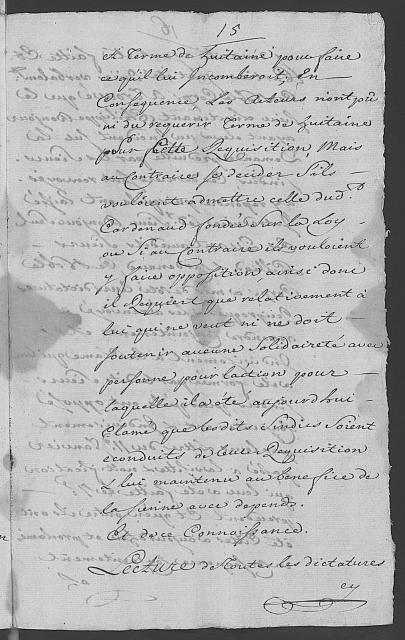 15
et Terme de huitaine pour faire
ce qu'il lui Incomberoit, En
Consequence Les Acteurs n'ont pû
ni du requerir Terme de huitaine
pour Cette Requisition, Mais
au Contraire se decider S'ils
vouloient admettre celle dud.
Cordonaud fondée Sur la Loy
ou Si au Contraire ils vouloient
y faire opposition ainsi donc
il Requient que relativement à
lui qui ne veut ni ne doit
soutenir aucune Solidaireté avec
personne pour l'action pour
laquelle il a été aujourd'hui
Clamé que lesdits Sindics Soient
econduits de leur Requisition
& lui maintenu au benefice de
la Sienne avec depends.
Et de ce Connoissance.
Lecture de Toutes les dictatures
cy